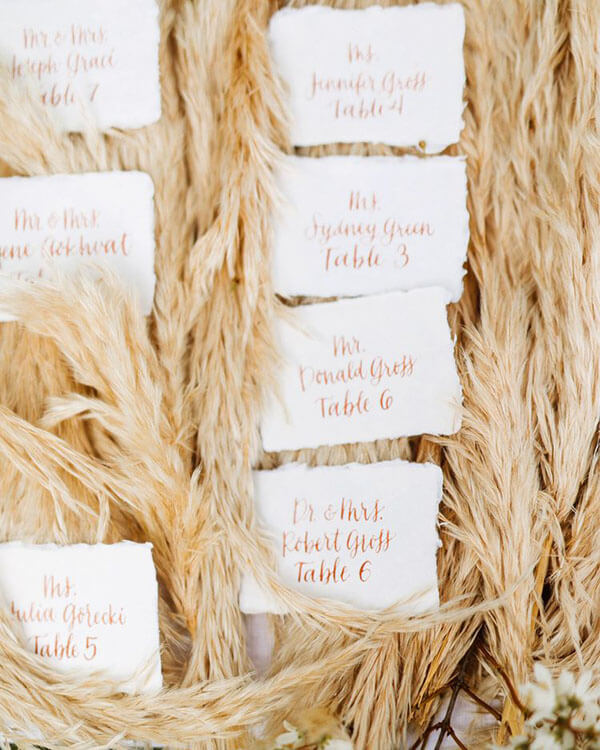 Mr & Mrs.
Joseph Grace
Table 7
Mr & Mrs.
Ms.
Julia Gorecki
Table 5
Ms.
Jennifer Gross
Table 4
Ms.
Sydney Green
Table 3
Mr.
Donald Gross
Table 6
Dr. & Mrs.
Robert Gross
Table 6